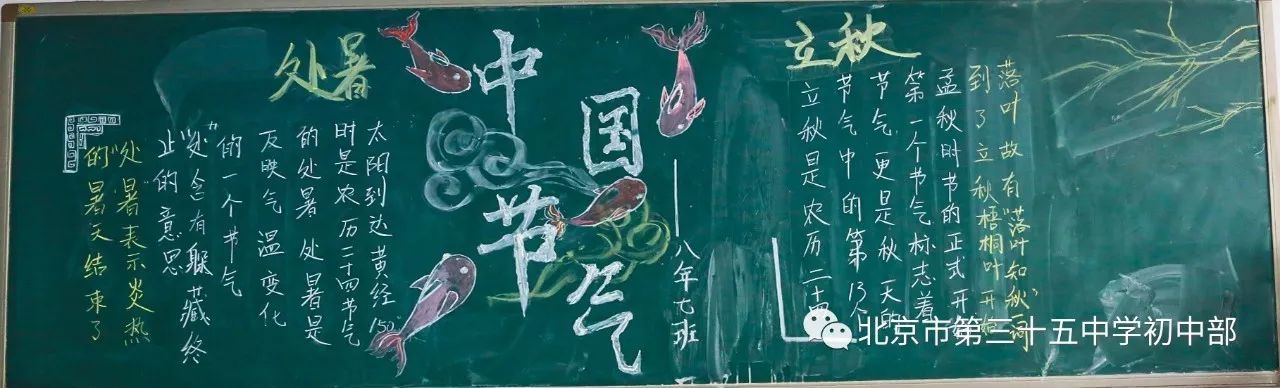 中国
节气
——八年七班
处暑
太阳到达黄经150°
时是农历二十四节气
的处暑 处暑是
反映气温变化
的一个节气
“处”含有躲藏终
止的意思
“处暑”表示炎热
的暑天结束了
立秋
立秋是农历二十四
节气中的第13个
节气 更是秋天的
第一个节气标志着
孟秋时节的正式开始
到了立秋梧桐叶开始
落叶 故有“落叶知秋”一词
北京市第三十五中学初中部